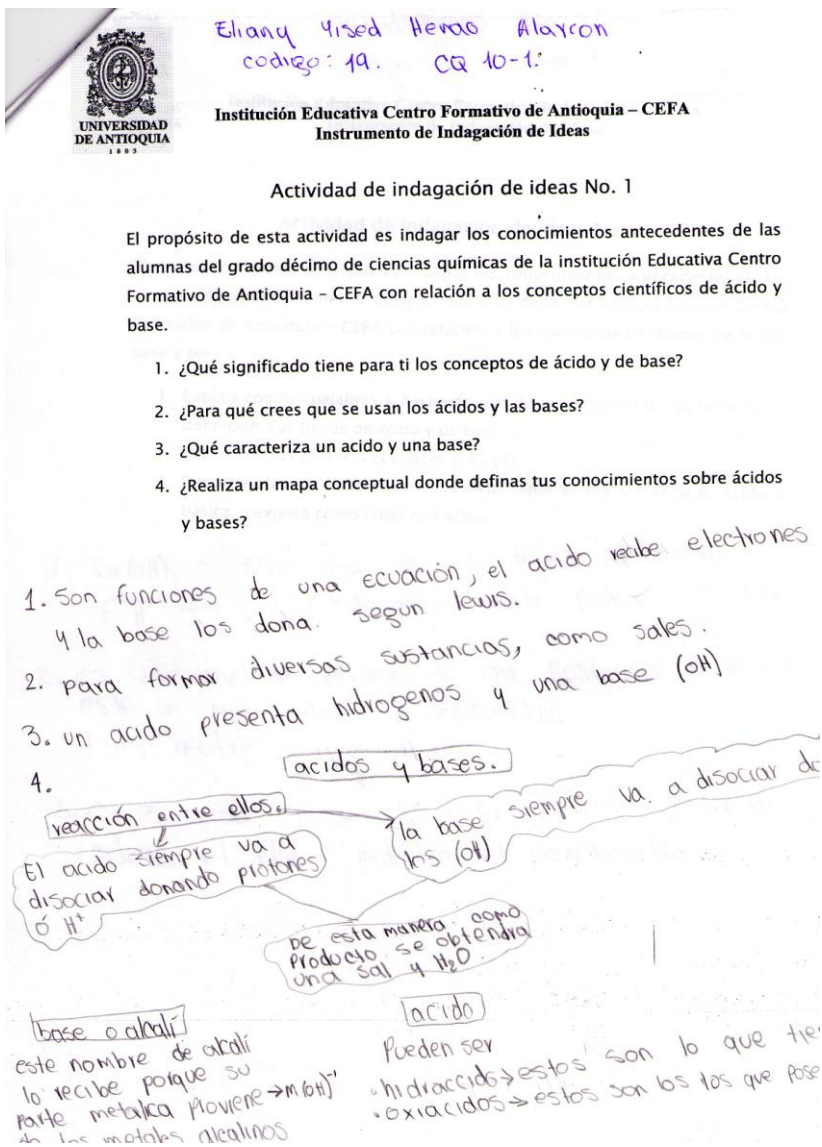 Eliany Yised Henao Alarcon
codigo: 19. CQ 10-1.
UNIVERSIDAD
DE ANTIOQUIA
1803
Institución Educativa Centro Formativo de Antioquia – CEFA
Instrumento de Indagación de Ideas
Actividad de indagación de ideas No. 1
El propósito de esta actividad es indagar los conocimientos antecedentes de las
alumnas del grado décimo de ciencias químicas de la institución Educativa Centro
Formativo de Antioquia – CEFA con relación a los conceptos científicos de ácido y
base.
1. ¿Qué significado tiene para ti los conceptos de ácido y de base?
2. ¿Para qué crees que se usan los ácidos y las bases?
3. ¿Qué caracteriza un acido y una base?
4. ¿Realiza un mapa conceptual donde definas tus conocimientos sobre ácidos
y bases?
1. Son funciones de una ecuación, el acido recibe electrones
y la base los dona. segun lewis.
2. para formar diversas sustancias, como sales.
3. un acido presenta hidrogenos y una base (OH)
4.
acidos y bases.
reacción entre ellos.
El acido siempre va a
disociar donando protones
ó H⁺
la base siempre va a disociar do
los (OH)
De esta manera como
producto se obtendra
una sal y H₂O.
base o alcali
este nombre de alcali
lo recibe porque su
parte metalica proviene → M(OH)⁻¹
de los metales alcalinos
acido
Pueden ser
• hidraccido → estos son lo que tie
• oxiacidos → estos son los los que pose